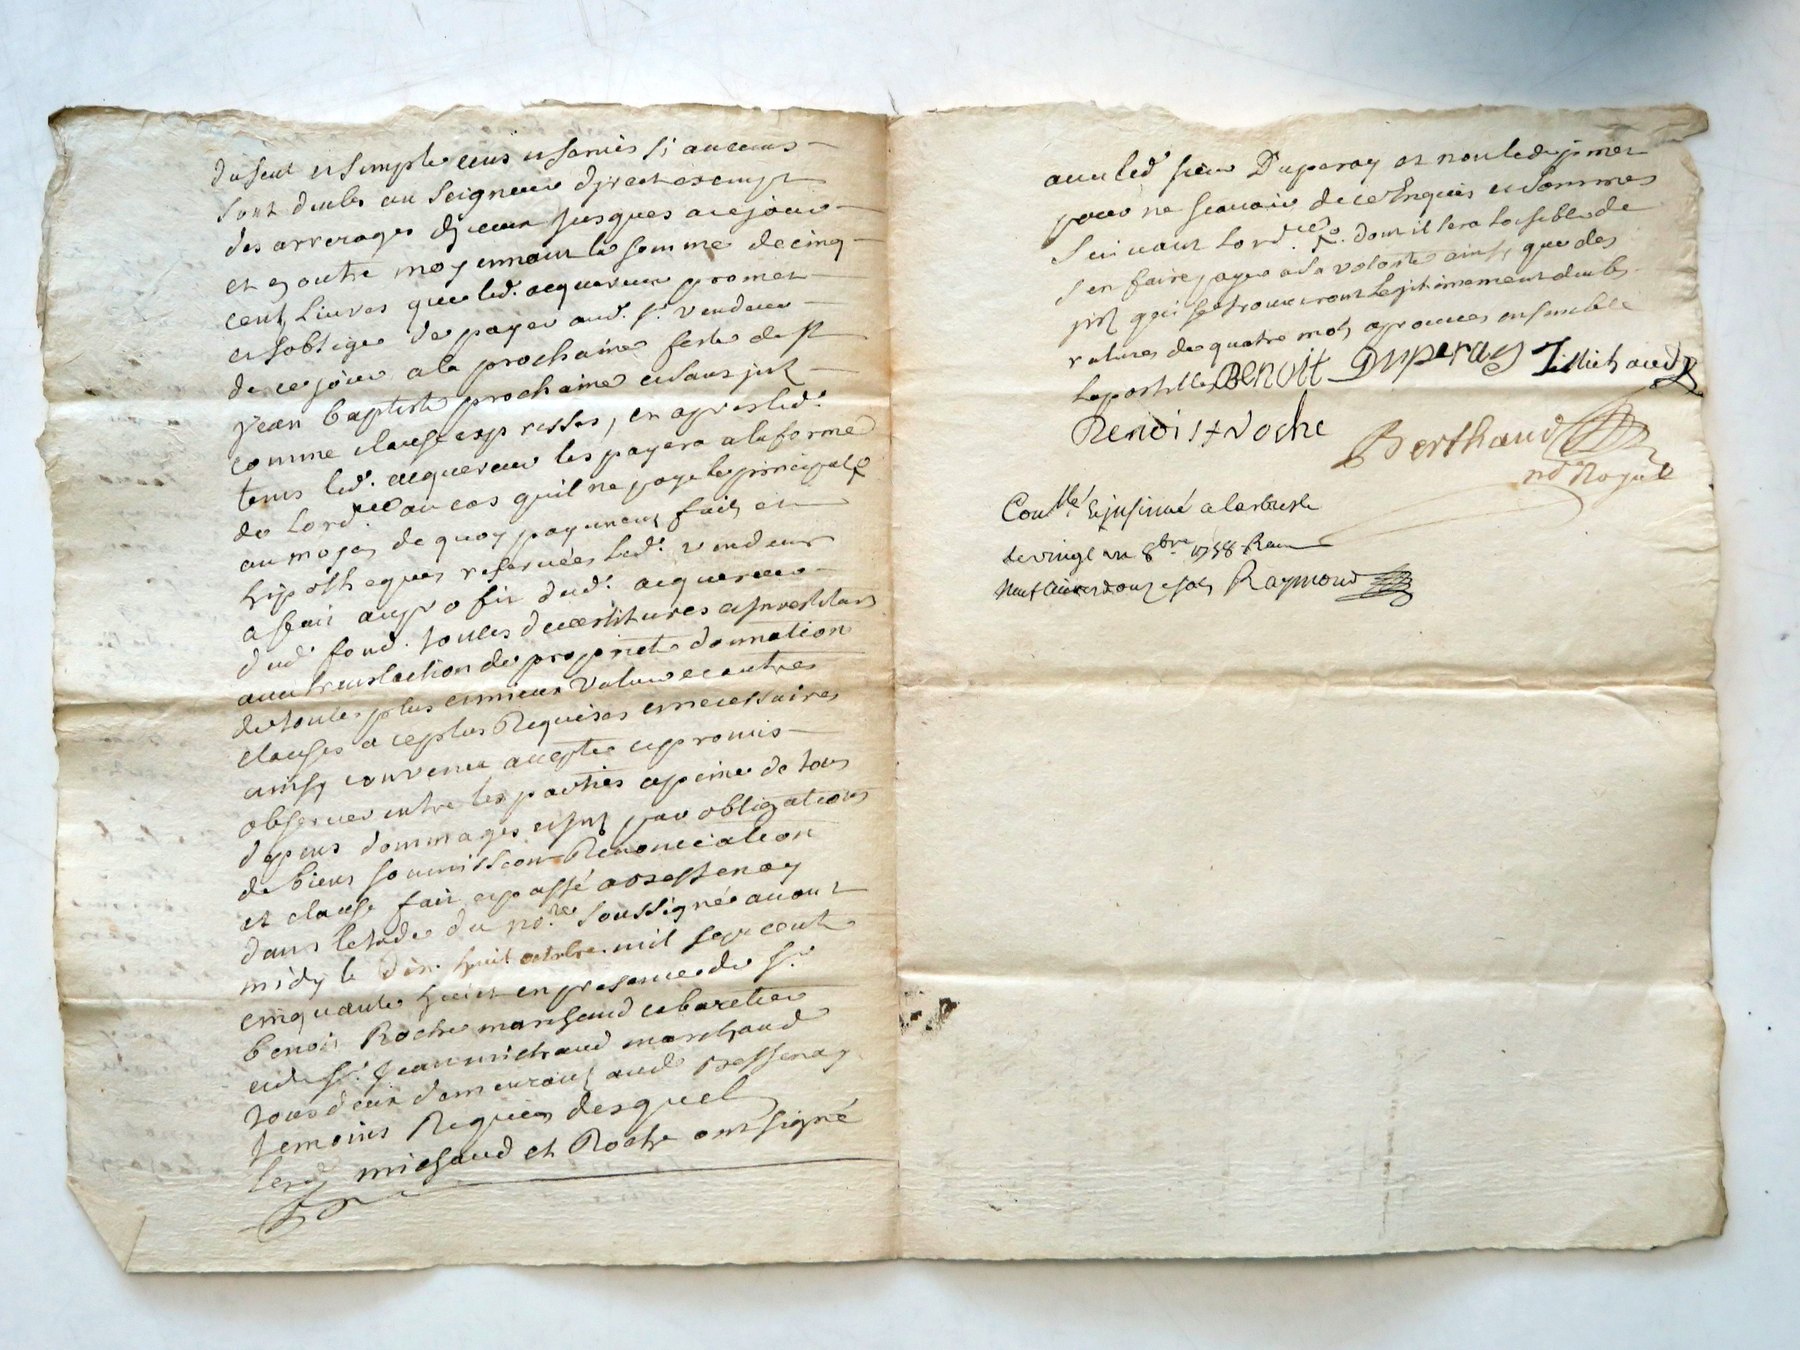 du seul et simple cens et servis si aucuns
sont deubs au Seigneur direct exempt
des arrerages d'jceux jusques a ce jour
et en outre moyennant la somme de cinq
cent, Livres que led. acquereur promet
et soblige de payer aud. sr. vendeur
de ce jour a la prochaine feste de st
jean Baptiste prochaine et sans
comme clause expresse, et apres led.
tems led. acquereur les payera a la forme
de Lord.ce au cas quil ne paye le principal
au moyen de quoy payement fait et
hipotheques reservées led. vendeur
a fait au profit dud. acquereur
dud. fond. toutes devestitures et investitures
avec translaction de propriété donnation
de toutes plus et mieux values et autres
clauses a ce plus Requises et necessaires
ainsy convenu accepté et promis
observer entre les parties a peine de tous
depens dommages et par obligations
de biens soumission Renonciation
et clause fait et passé a Dessenay
dans letude du no.re soussigné avant
midy le dix huit octobre mil sept cent
cinquante huict en presence de sr.
Benoit Roche marchand cabaretier
et de sr. Jean michaud marchand
tous deux demeurant aud. Dessenay
temoins Requis desquels
lesd michaud et Roche ont signé
avec led. sieur Duperay et non led.
pour ne scavoir de ce Enquis et sommés
suivant Lord.ce dont il sera loisible de
sen faire payer a sa volonté ainsy que des
qui se trouveront legitimement deubs
ratures de quatre mots aprouvés ensemble
lapostille Benoit Duperay J Michaud
Benoist Roche
Berthaud
no Royal
Con.llé et insinué a
le vingt un 8bre 1758 Reçu
neuf livres douze sols Raymond